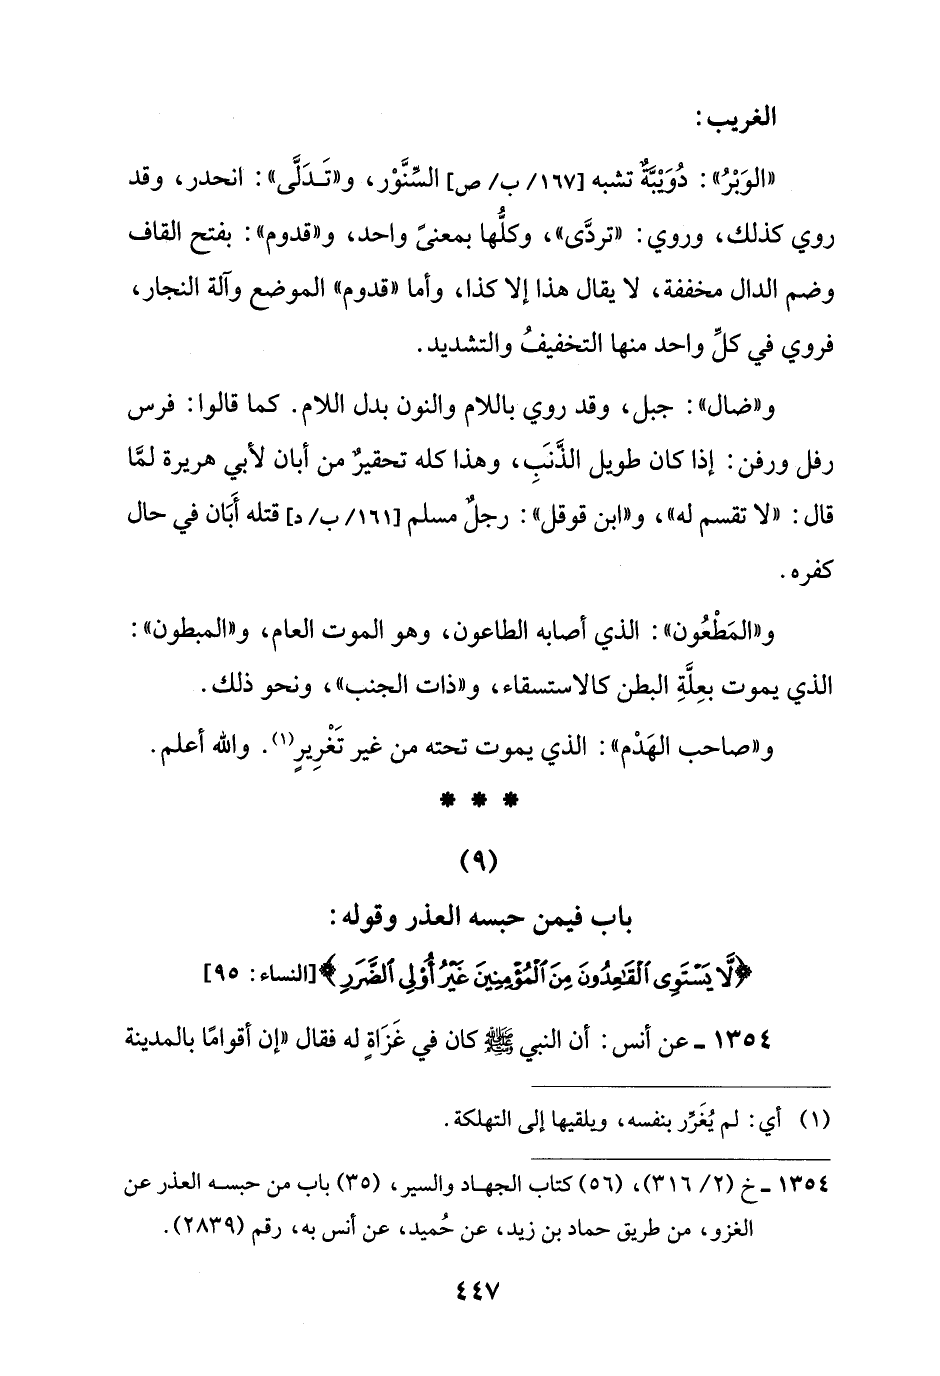 الغريب:
«الوَبْرُ»: دُوَيْبَّةٌ تشبه [١٦٧/ ب/ ص] السِّنَّوْر، و«تَدَلَّى»: انحدر، وقد
روي كذلك، وروي: «تردَّى»، وكلُّها بمعنىً واحد، و«قدوم»: بفتح القاف
وضم الدال مخففة، لا يقال هذا إلا كذا، وأما «قدوم» الموضع وآلة النجار،
فروي في كلِّ واحد منها التخفيفُ والتشديد.
و«ضال»: جبل، وقد روي باللام والنون بدل اللام. كما قالوا: فرس
رفل ورفن: إذا كان طويل الذَّنَبِ، وهذا كله تحقيرٌ من أبان لأبي هريرة لمَّا
قال: «لا تقسم له»، و«ابن قوقل»: رجلٌ مسلم [١٦١/ ب/ د] قتله أَبَان في حال
كفره.
و«المَطْعُون»: الذي أصابه الطاعون، وهو الموت العام، و«المبطون»:
الذي يموت بعِلَّةِ البطن كالاستسقاء، و«ذات الجنب»، ونحو ذلك.
و«صاحب الهَدْم»: الذي يموت تحته من غير تَغْرِيرٍ(١). والله أعلم.
* * *
(٩)
باب فيمن حبسه العذر وقوله:
﴿لَّا يَسْتَوِى ٱلْقَٰعِدُونَ مِنَ ٱلْمُؤْمِنِينَ غَيْرُ أُو۟لِى ٱلضَّرَرِ﴾ [النساء: ٩٥]
١٣٥٤ ـ عن أنس: أن النبي ﷺ كان في غَزَاةٍ له فقال «إن أقوامًا بالمدينة
(١) أي: لم يُغَرِّر بنفسه، ويلقيها إلى التهلكة.
١٣٥٤ ـ خ (٢/ ٣١٦)، (٥٦) كتاب الجهاد والسير، (٣٥) باب من حبسه العذر عن
الغزو، من طريق حماد بن زيد، عن حُميد، عن أنس به، رقم (٢٨٣٩).
٤٤٧